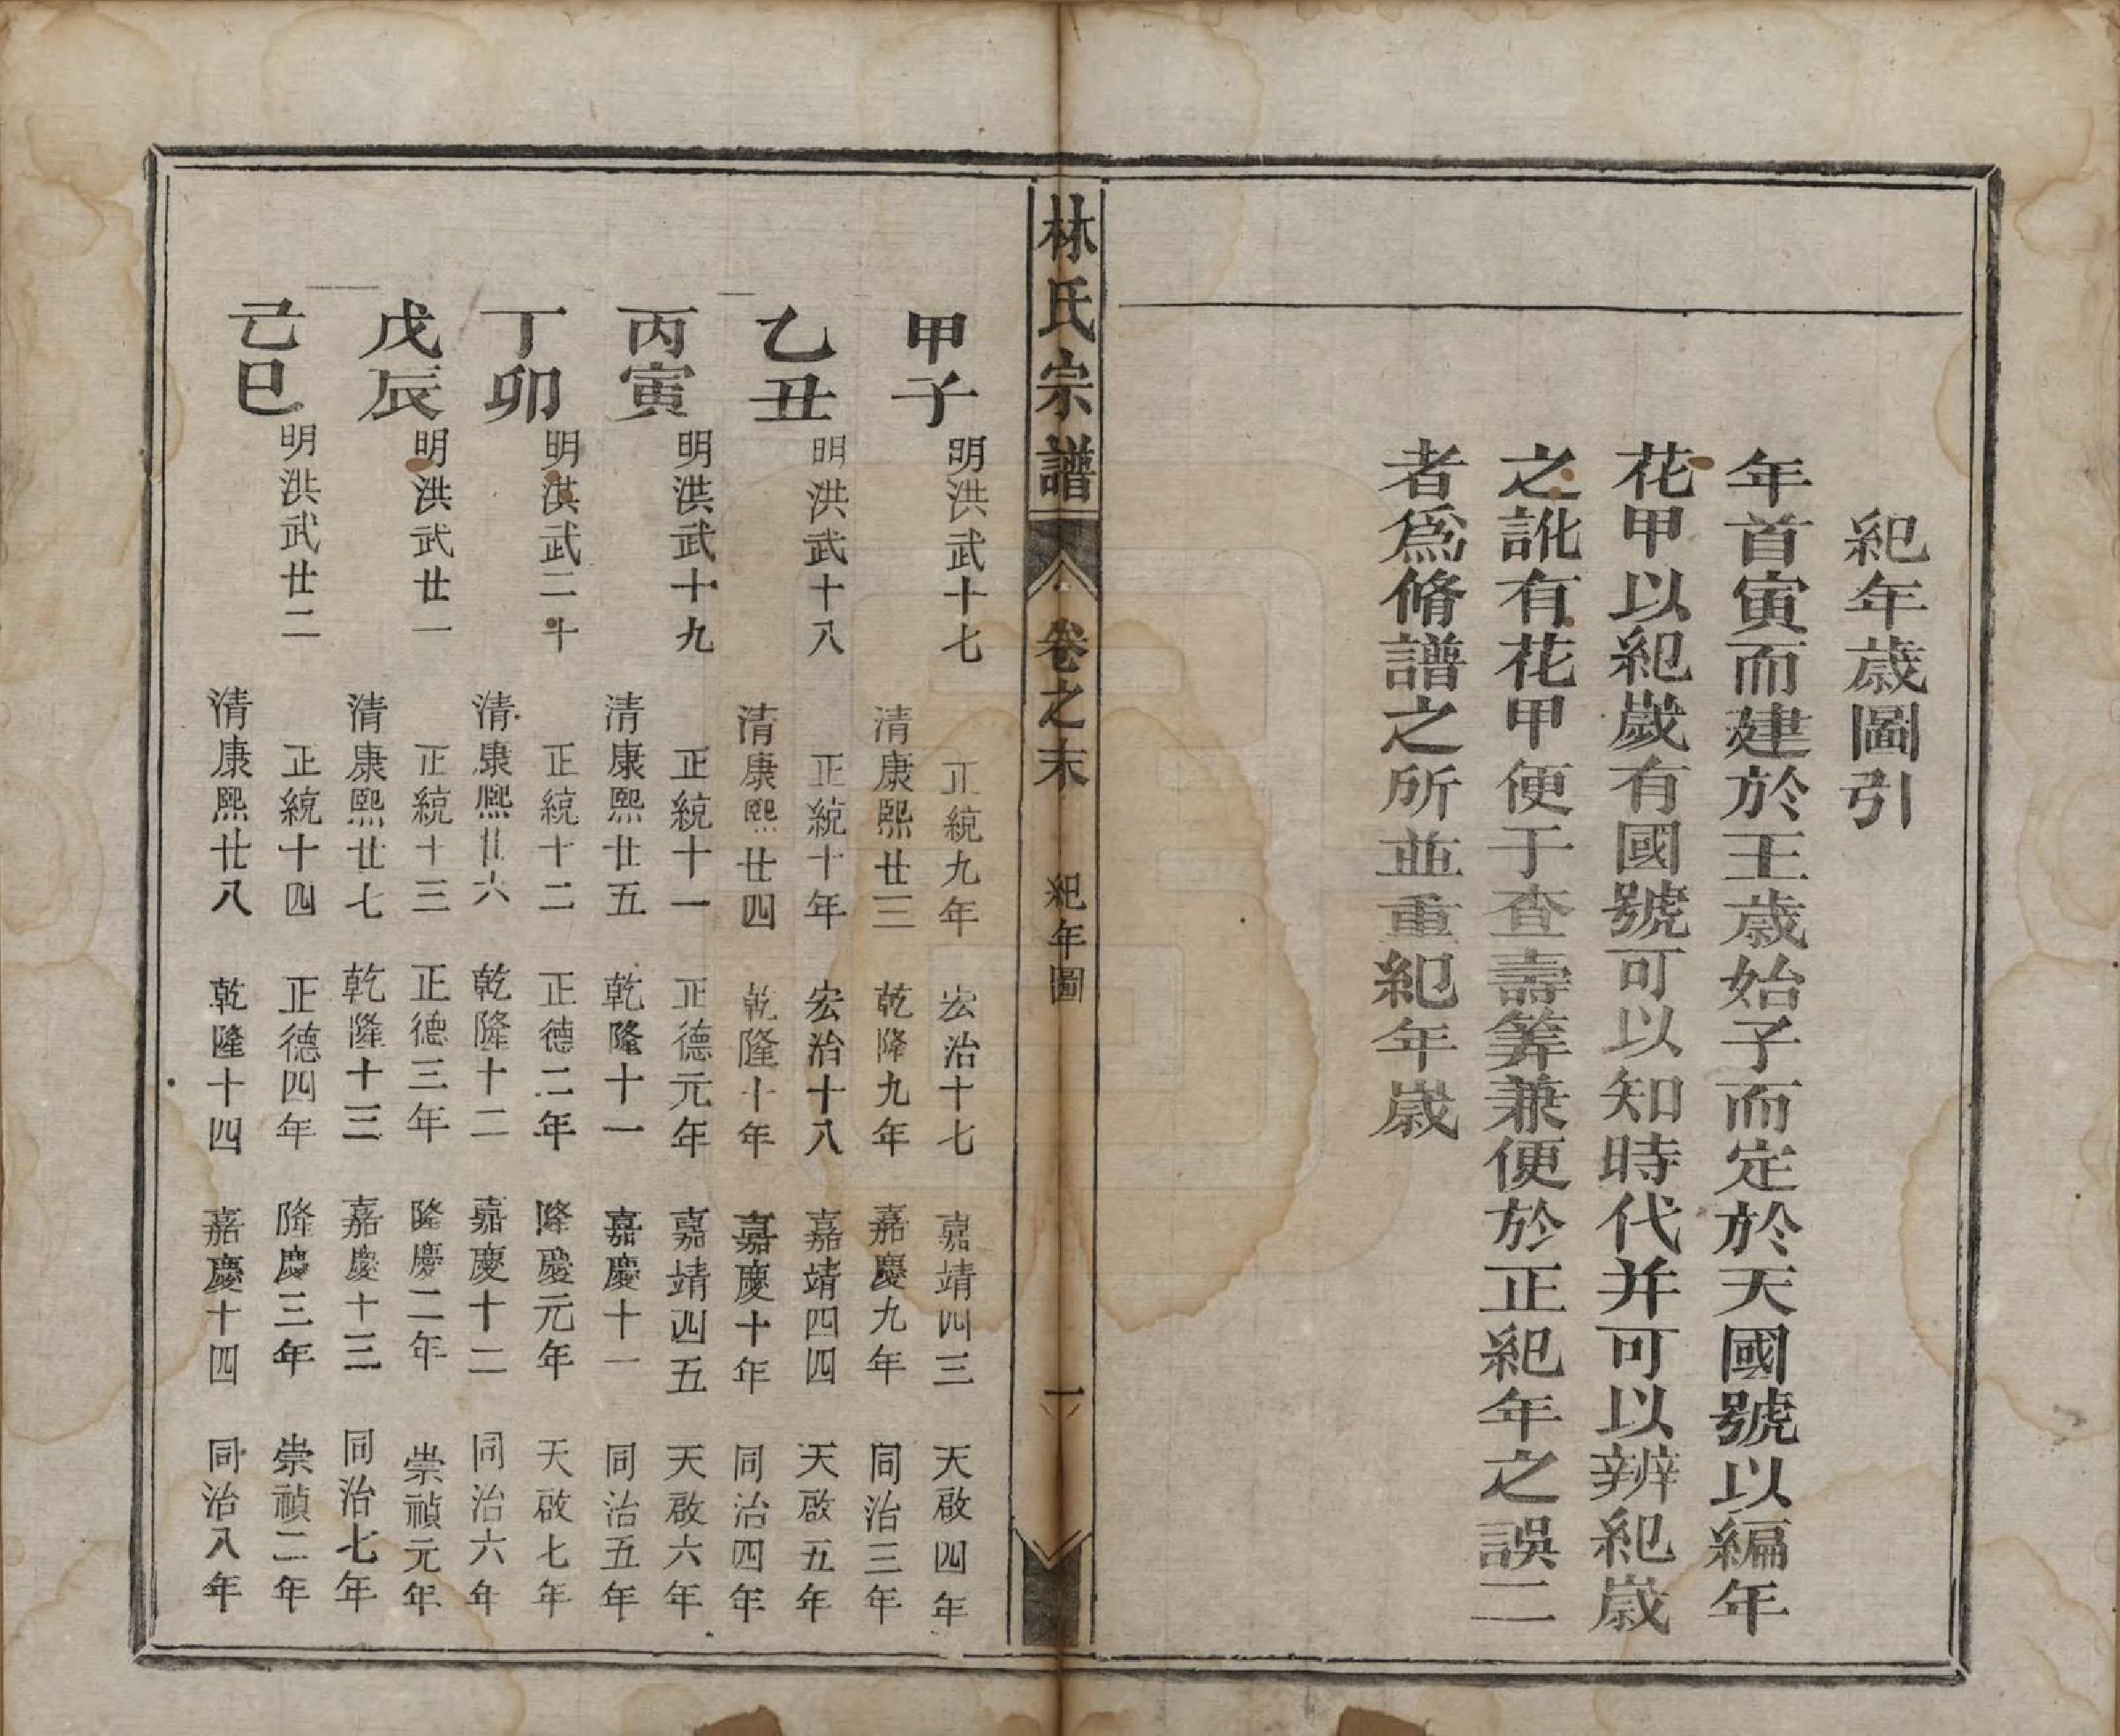 紀年歳圖引
年首寅而建於王歳始子而定於天國號以編年
花甲以紀歲有國號可以知時代并可以辨紀歳
之訛有花甲便于查壽筭兼便於正紀年之誤二
者爲脩譜之所並重紀年歳
林氏宗譜 卷之末 紀年圖 一
甲子
明洪武十七 正統九年 宏治十七 嘉靖四三 天啟四年
清康熙廿三 乾隆九年 嘉慶九年 同治三年
乙丑
明洪武十八 正統十年 宏治十八 嘉靖四四 天啟五年
清康熙廿四 乾隆十年 嘉慶十年 同治四年
丙寅
明洪武十九 正統十一 正德元年 嘉靖四五 天啟六年
清康熙廿五 乾隆十一 嘉慶十一 同治五年
丁卯
明洪武二十 正統十二 正德二年 隆慶元年 天啟七年
清康熙廿六 乾隆十二 嘉慶十二 同治六年
戊辰
明洪武廿一 正統十三 正德三年 隆慶二年 崇禎元年
清康熙廿七 乾隆十三 嘉慶十三 同治七年
己巳
明洪武廿二 正統十四 正德四年 隆慶三年 崇禎二年
清康熙廿八 乾隆十四 嘉慶十四 同治八年